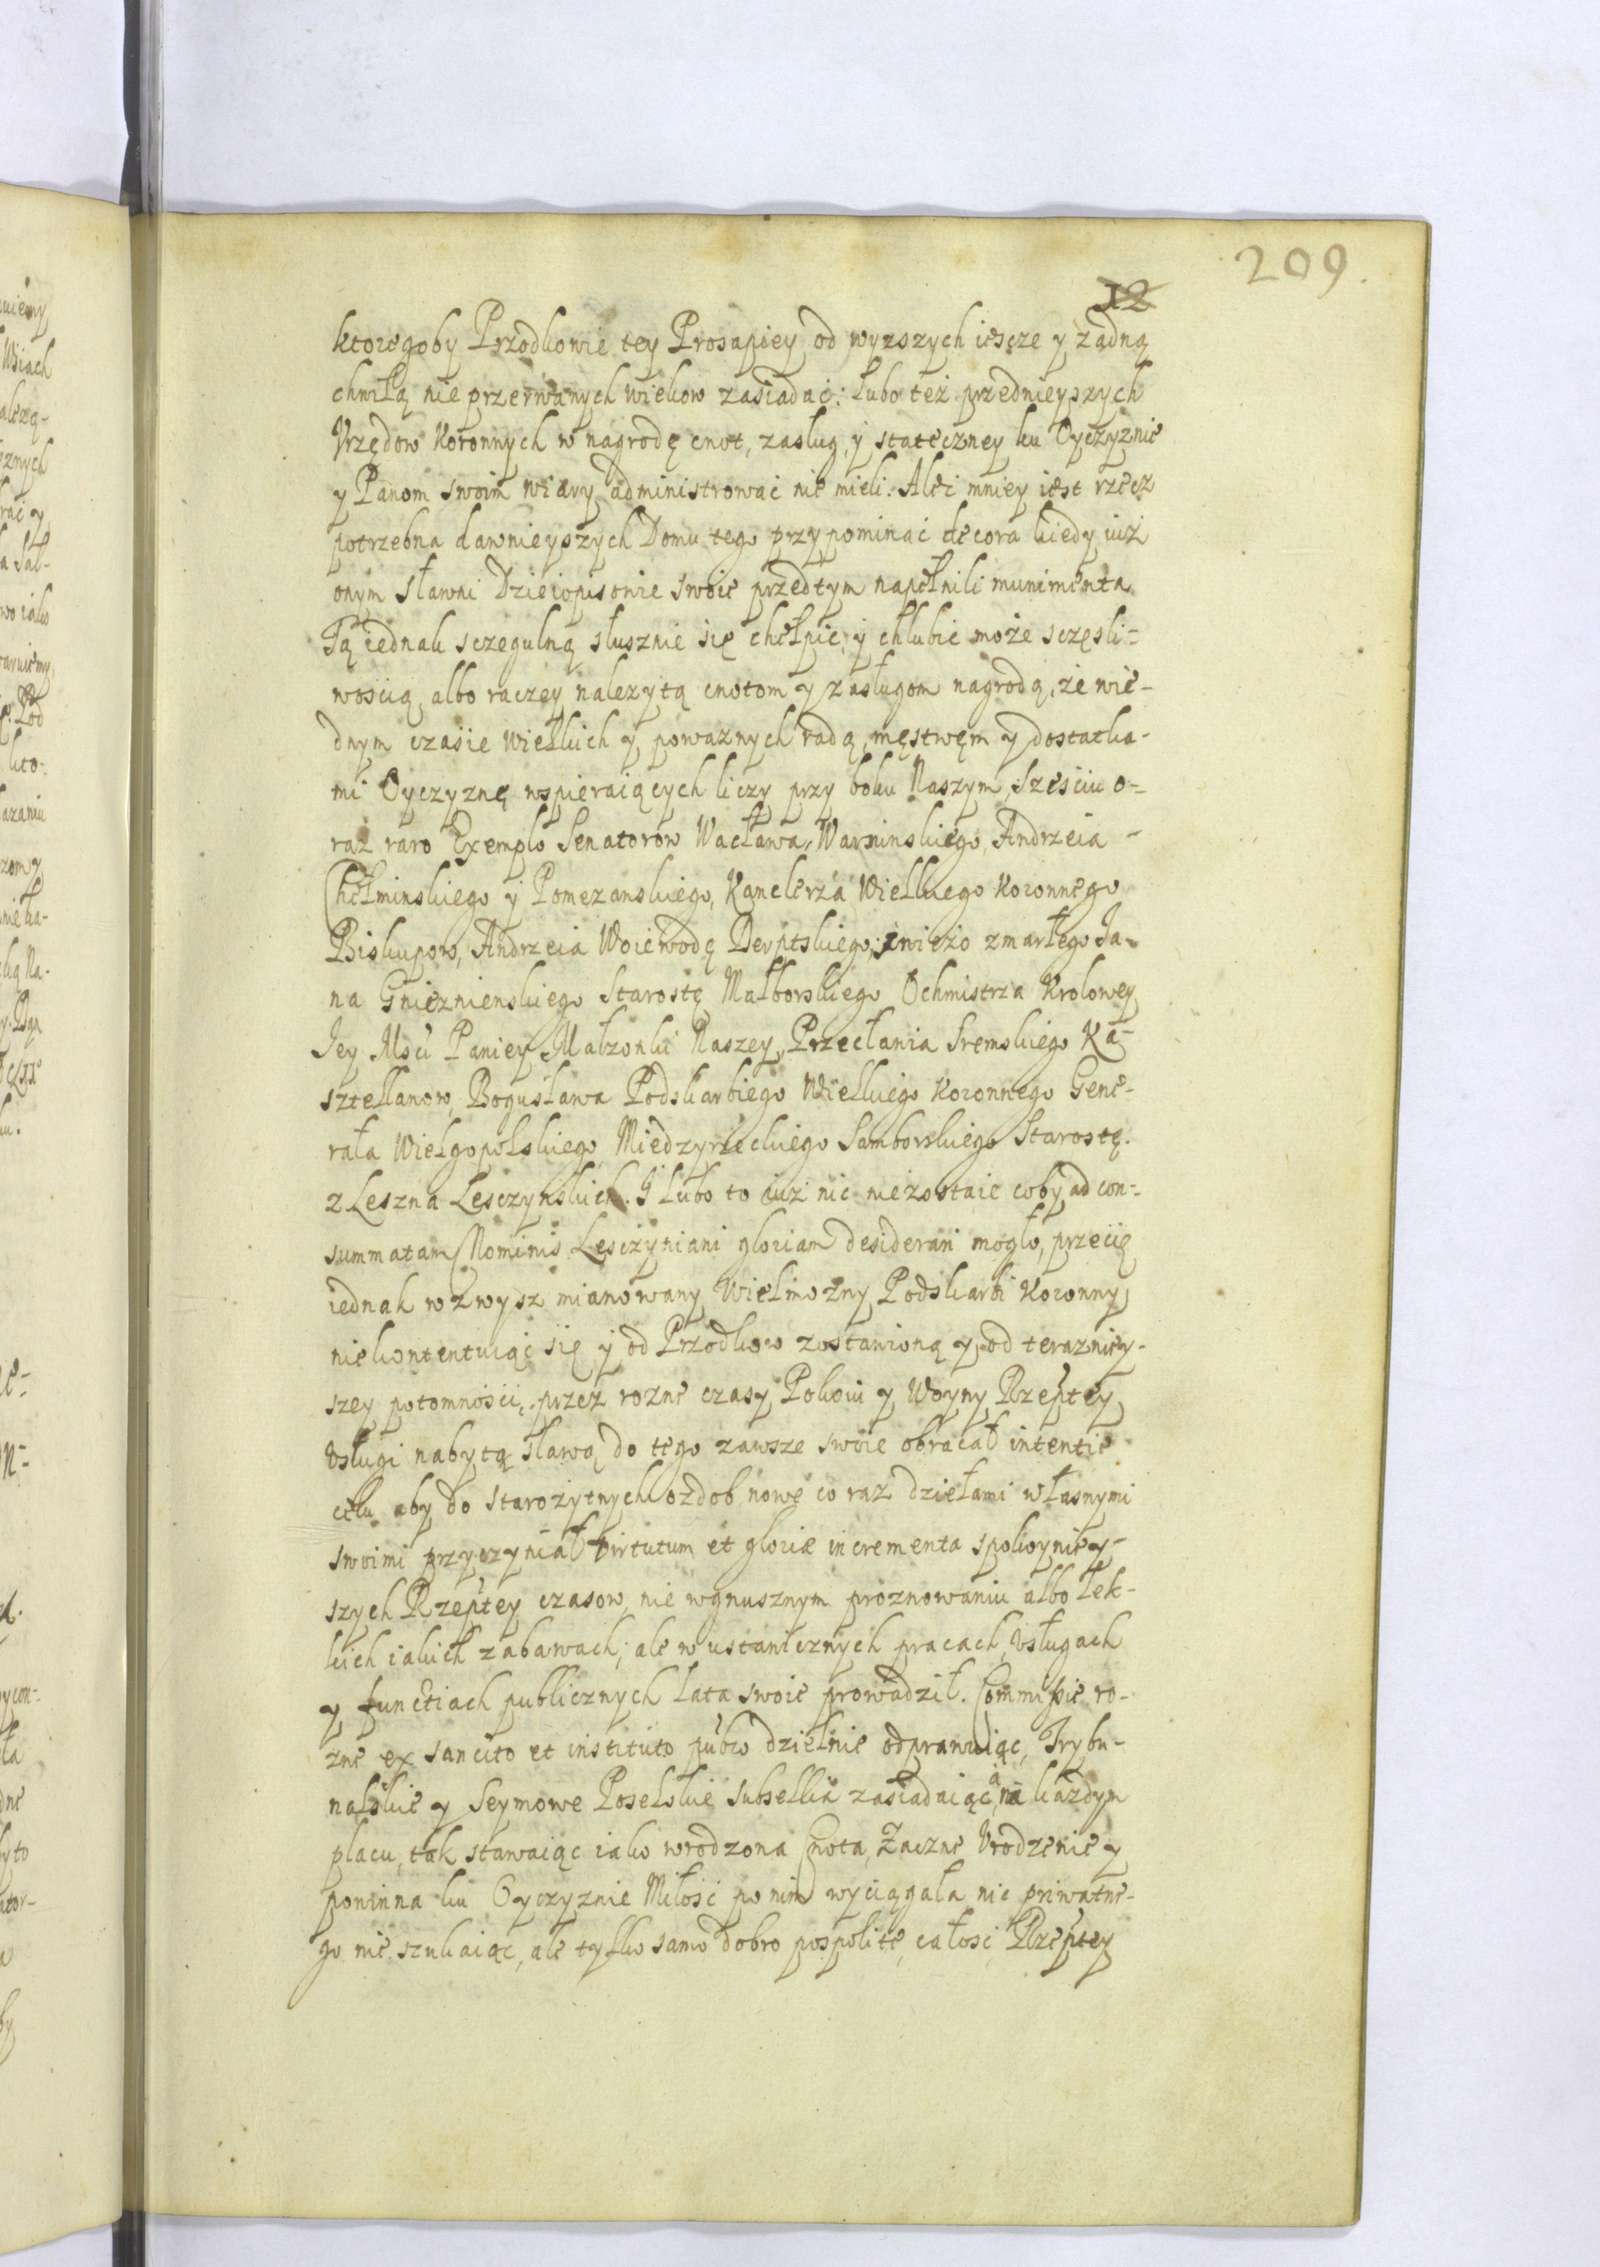 209.
12
ktoregoby Przodkowie tey Prosapiey od wyzszych iescze y żadną
chwilą nie przerwanych wiekow zasiadać: lubo też przednieyszych
Vrzędow Koronnych w nagrodę cnot, zasług, y stateczney ku Oyczyznie
y Panom swoim wiary administrować nie mieli. Aleć mniey iest rzecz
potrzebna dawnieyszych Domu tego przypominać decora kiedy iuż
onym sławni Dzieiopisowie swoie przedtym napełnili munimenta
Tą iednak sczegulną słusznie się chełpić y chlubić może sczęsli-
wością, albo raczey należytą cnotom y zasługom nagrodą, że wie-
dnym czasie wielkich y poważnych radą, męstwęm y dostatka-
mi Oyczyznę wspieraiących liczy przy boku Naszym, Sześciu o-
raz raro Exemplo Senatorow Wacława, Warminskiego, Andrzeia -
Chełminskiego y Pomezanskiego, Kanclerza Wielkiego Koronnego
Biskupow, Andrzeia Woiewodę Derptskiego, swieżo zmarłego Ja-
na Gnieznienskiego Starostę Malborskiego Ochmistrza Krolowey
Jey Msći Paniey Małzonki Naszey, Przecłania Sremskiego Ka-
sztellanow, Bogusława Podskarbiego Wielkiego Koronnego Gene-
rała Wielgopolskiego Miedzyrzeckiego Samborskiego Starostę.
z Leszna Lesczynskich. Y lubo to iuż nic niezostaie coby ad con-
summatam Nominis Lesczyniani gloriam desiderari mogło, przecię
iednak wzwysz mianowany Wielmożny Podskarbi Koronny
niekontentuiąc się y od Przodkow zostawioną y od teraznieỳ-
szey potomności, przez rozne czasy Pokoiu y Woyny Rzeptey
Vsługi nabytą sławą do tego zawsze swoie obracał intentie
celu aby do starożytnych ozdob nowe co raz dziełami własnymi
swoimi przyczyniał virtutum et gloriæ incrementa spokoyniey-
szych Rzeptey czasow, nie wgnusznym proznowaniu albo lek-
kich iakich zabawach; ale w ustanicznych pracach, Vsługach
y functiach publicznych lata swoie prowadził. Commissie ro-
zne ex sancito et instituto pubco dzielnie odprawuiąc, Trybu-
nalskie y Seymowe Poselskie subsellia zasiadaiąc, a na kazdym
placu, tak stawaiąc iako wrodzona Cnota, Zacne Vrodzenie y
powinna ku Oyczyznie Miłość po nim wyciągała nic priwatne-
go nie szukaiąc, ale tylko samo dobro pospolite, całość Rzeptey